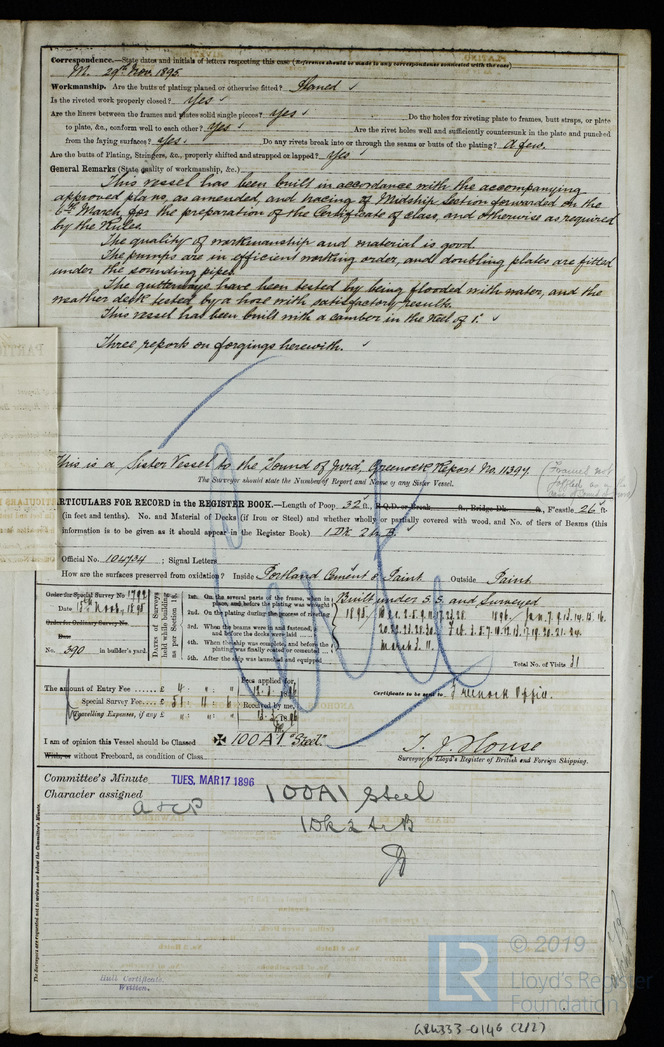 Correspondence.—State dates and initials of letters respecting this case (Reference should be made to any correspondence connected with the case)
M. 29th Nov. 1895.
Workmanship. Are the butts of plating planed or otherwise fitted? Planed ✓
Is the riveted work properly closed? yes ✓
Are the liners between the frames and plates solid single pieces? yes ✓ Do the holes for riveting plate to frames, butt straps, or plate
to plate, &c., conform well to each other? yes ✓ Are the rivet holes well and sufficiently countersunk in the plate and punched
from the faying surfaces? yes ✓ Do any rivets break into or through the seams or butts of the plating? A few.
Are the butts of Plating, Stringers, &c., properly shifted and strapped or lapped? yes ✓
General Remarks (State quality of workmanship, &c.)
This vessel has been built in accordance with the accompanying
approved plans, as amended, and tracing of Midship Section forwarded on the
6th March, for the preparation of the Certificate of class, and otherwise as required
by the Rules.
The quality of workmanship and material is good.
The pumps are in efficient working order, and doubling plates are fitted
under the sounding pipes.
The gutterways have been tested by being flooded with water, and the
weather deck tested by a hose with satisfactory results.
This vessel has been built with a camber in the keel of 1". ✓
Three reports on forgings herewith. ✓
This is a Sister Vessel to the "Sound of Jura", Greenock Report No. 11397.
The Surveyor should state the Number of Report and Name of any Sister Vessel.
PARTICULARS FOR RECORD in the REGISTER BOOK.—Length of Poop 32 ft., R.Q.D. or Break ft., Bridge Dk. ft., F'castle 26 ft.
(in feet and tenths). No. and Material of Decks (if Iron or Steel) and whether wholly or partially covered with wood, and No. of tiers of Beams (this
information is to be given as it should appear in the Register Book) 1 Dk 2 tr B
Official No. 104734 ; Signal Letters
How are the surfaces preserved from oxidation? Inside Portland Cement & Paint Outside Paint
Order for Special Survey No. 1792
Date
Order for Ordinary Survey No.
Date
No. 390 in builder's yard.
Dates of Surveys held while building as per Section 18.
1st. On the several parts of the frame, when in place, and before the plating was wrought
2nd. On the plating during the process of riveting
3rd. When the beams were in and fastened, and before the decks were laid
4th. When the ship was complete, and before the plating was finally coated or cemented
5th. After the ship was launched and equipped
Built under S.S. and Surveyed
Total No. of Visits 31
The amount of Entry Fee ...... £ 4 : " : "
Special Survey Fee
Travelling Expenses, if any £
Fees applied for,
Received by me,
Certificate to be sent to Greenock Office.
I am of opinion this Vessel should be Classed ✠ 100A1 "Steel"
With, or without Freeboard, as condition of Class
T. J. House
Surveyor to Lloyd's Register of British and Foreign Shipping.
Committee's Minute TUES. MAR 17 1896
Character assigned 100A1 Steel
A & CP
1 Dk 2 tr B
The Surveyors are requested not to write on or below the Committee's Minute.
Hull Certificate
Written.
LR
© 2019
Lloyd's Register
Foundation
GRK333-0146 (2/2)